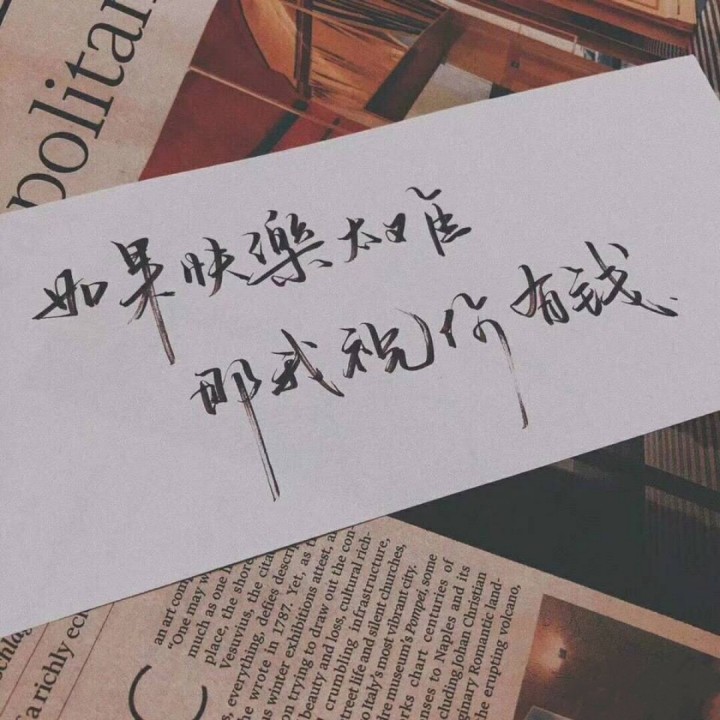 politan
如果快樂太难
那我祝你有钱
an art com
"One may w
much as one
place, the shor
Vesuvius, the cita
s, everything, defies descri
he wrote in 1787. Yet, as t
us winter exhibitions attest, a
on trying to draw out the con-
beauty and loss, cultural rich-
crumbling infrastructure,
treet life and silent churches,
o Italy's most vibrant city.
re museum's Pompei, some
orks chart centuries of
nses to Naples and its
cluding Johan Christian
ginary Romantic land-
he erupting volcano,
C
a richly ech